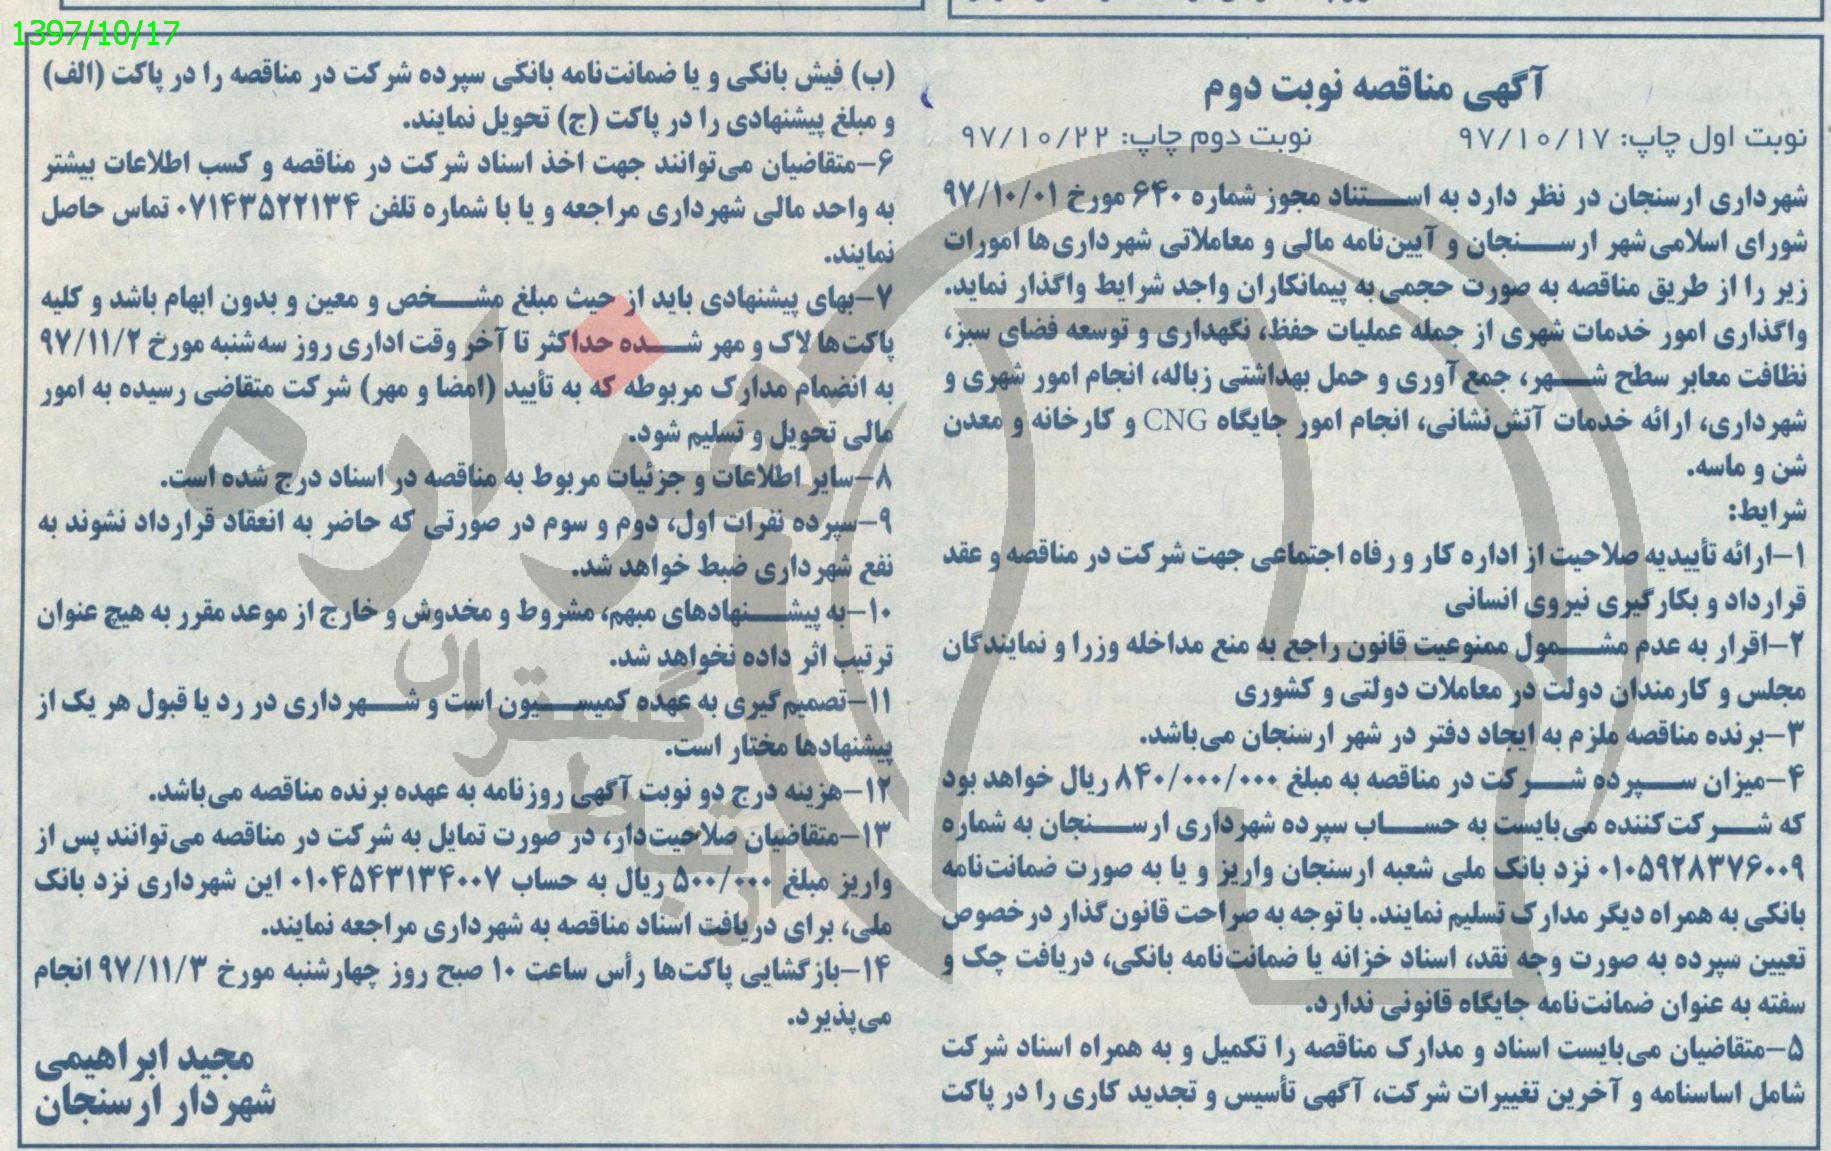 1397/10/17
آگهی مناقصه نوبت دوم
نوبت اول چاپ: ۹۷/۱۰/۱۷ نوبت دوم چاپ: ۹۷/۱۰/۲۲
شهرداری ارسنجان در نظر دارد به استناد مجوز شماره ۶۴۰ مورخ ۹۷/۱۰/۰۱
شورای اسلامی شهر ارسنجان و آیین‌نامه مالی و معاملاتی شهرداری‌ها امورات
زیر را از طریق مناقصه به صورت حجمی به پیمانکاران واجد شرایط واگذار نماید.
واگذاری امور خدمات شهری از جمله عملیات حفظ، نگهداری و توسعه فضای سبز،
نظافت معابر سطح شهر، جمع‌آوری و حمل بهداشتی زباله، انجام امور شهری و
شهرداری، ارائه خدمات آتش‌نشانی، انجام امور جایگاه CNG و کارخانه و معدن
شن و ماسه.
شرایط:
۱-ارائه تأییدیه صلاحیت از اداره کار و رفاه اجتماعی جهت شرکت در مناقصه و عقد
قرارداد و بکارگیری نیروی انسانی
۲-اقرار به عدم مشمول ممنوعیت قانون راجع به منع مداخله وزرا و نمایندگان
مجلس و کارمندان دولت در معاملات دولتی و کشوری
۳-برنده مناقصه ملزم به ایجاد دفتر در شهر ارسنجان می‌باشد.
۴-میزان سپرده شرکت در مناقصه به مبلغ ۸۴۰/۰۰۰/۰۰۰ ریال خواهد بود
که شرکت‌کننده می‌بایست به حساب سپرده شهرداری ارسنجان به شماره
۰۱۰۵۹۲۸۳۷۶۰۰۹ نزد بانک ملی شعبه ارسنجان واریز و یا به صورت ضمانت‌نامه
بانکی به همراه دیگر مدارک تسلیم نمایند. با توجه به صراحت قانون‌گذار درخصوص
تعیین سپرده به صورت وجه نقد، اسناد خزانه یا ضمانت‌نامه بانکی، دریافت چک و
سفته به عنوان ضمانت‌نامه جایگاه قانونی ندارد.
۵-متقاضیان می‌بایست اسناد و مدارک مناقصه را تکمیل و به همراه اسناد شرکت
شامل اساسنامه و آخرین تغییرات شرکت، آگهی تأسیس و تجدید کاری را در پاکت
(ب) فیش بانکی و یا ضمانت‌نامه بانکی سپرده شرکت در مناقصه را در پاکت (الف)
و مبلغ پیشنهادی را در پاکت (ج) تحویل نمایند.
۶-متقاضیان می‌توانند جهت اخذ اسناد شرکت در مناقصه و کسب اطلاعات بیشتر
به واحد مالی شهرداری مراجعه و یا با شماره تلفن ۰۷۱۴۳۵۲۲۱۳۴ تماس حاصل
نمایند.
۷-بهای پیشنهادی باید از حیث مبلغ مشخص و معین و بدون ابهام باشد و کلیه
پاکت‌ها لاک و مهر شده حداکثر تا آخر وقت اداری روز سه‌شنبه مورخ ۹۷/۱۱/۲
به انضمام مدارک مربوطه که به تأیید (امضا و مهر) شرکت متقاضی رسیده به امور
مالی تحویل و تسلیم شود.
۸-سایر اطلاعات و جزئیات مربوط به مناقصه در اسناد درج شده است.
۹-سپرده نفرات اول، دوم و سوم در صورتی که حاضر به انعقاد قرارداد نشوند به
نفع شهرداری ضبط خواهد شد.
۱۰-به پیشنهادهای مبهم، مشروط و مخدوش و خارج از موعد مقرر به هیچ عنوان
ترتیب اثر داده نخواهد شد.
۱۱-تصمیم‌گیری به عهده کمیسیون است و شهرداری در رد یا قبول هر یک از
پیشنهادها مختار است.
۱۲-هزینه درج دو نوبت آگهی روزنامه به عهده برنده مناقصه می‌باشد.
۱۳-متقاضیان صلاحیت‌دار، در صورت تمایل به شرکت در مناقصه می‌توانند پس از
واریز مبلغ ۵۰۰/۰۰۰ ریال به حساب ۰۱۰۴۵۴۳۱۳۴۰۰۷ این شهرداری نزد بانک
ملی، برای دریافت اسناد مناقصه به شهرداری مراجعه نمایند.
۱۴-بازگشایی پاکت‌ها رأس ساعت ۱۰ صبح روز چهارشنبه مورخ ۹۷/۱۱/۳ انجام
می‌پذیرد.
مجید ابراهیمی
شهردار ارسنجان
هزاره
گستران
ارتباط